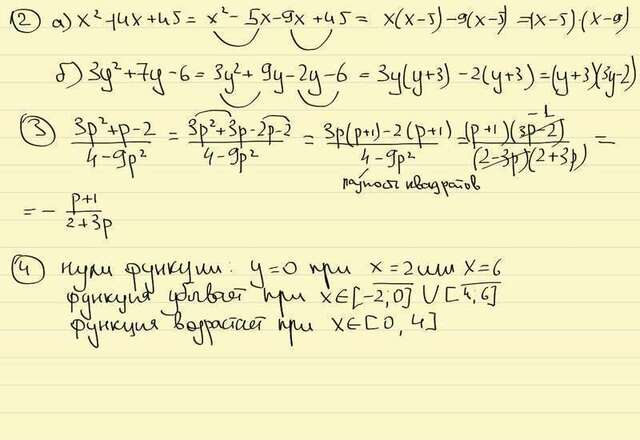 ② а) x² - 14x + 45 = x² - 5x - 9x + 45 = x(x-5) - 9(x-5) = (x-5)(x-9)
б) 3y² + 7y - 6 = 3y² + 9y - 2y - 6 = 3y(y+3) - 2(y+3) = (y+3)(3y-2)
③ (3p²+p-2)/(4-9p²) = (3p²+3p-2p-2)/(4-9p²) = (3p(p+1)-2(p+1))/(4-9p²) = ((p+1)(3p-2))/((2-3p)(2+3p)) =
-1
квадратов
= - (p+1)/(2+3p)
④ нули функции: y=0 при x=2 или x=6
функция убывает при x∈[-2;0] ∪ [4;6]
функция возрастает при x∈[0,4]